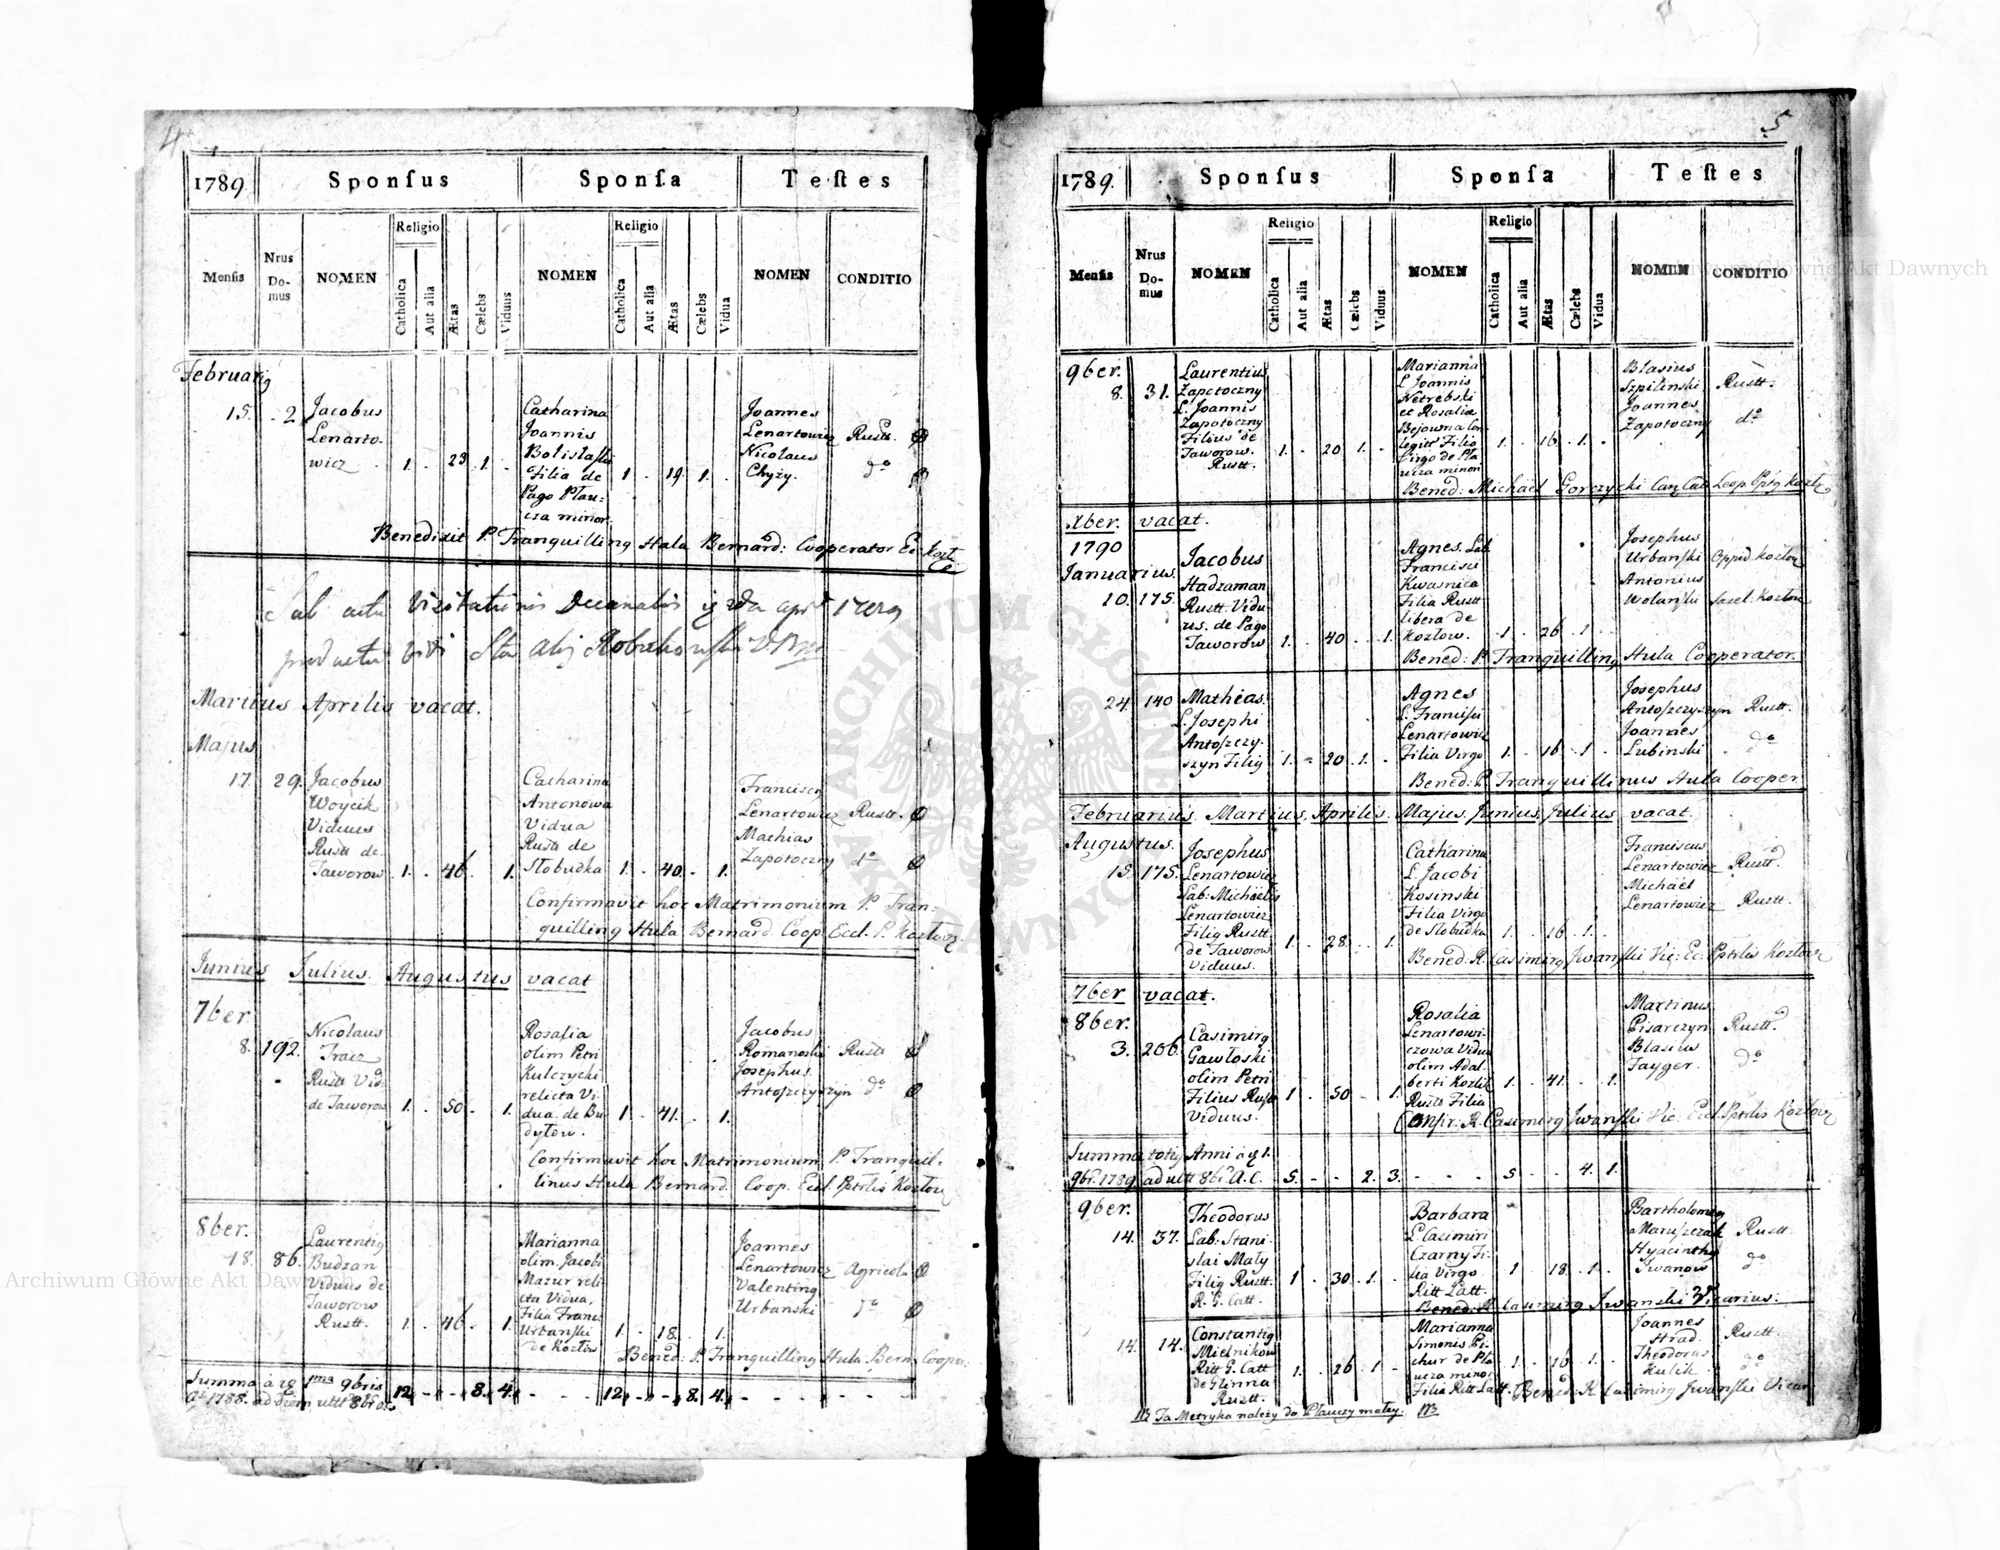 4
1789.
Sponſus
Sponſa
Teſtes
Menſis
Nrus Do-mus
NOMEN
Religio
Catholica
Aut alia
Ætas
Cælebs
Viduus
NOMEN
Religio
Catholica
Aut alia
Ætas
Cælebs
Vidua
NOMEN
CONDITIO
Februarig
15.
2
Jacobus
Lenarto-
wicz
1.
23
1.
Catharina
Joannis
Filia de
Pago Plau-
cza minor.
1
19
1.
Joannes
Lenartowicz
Nicolaus
Chyży.
Rustt.
do
Benedixit P. Tranquilling Hula Bernard: Cooperator Ec. Kozł.
Martius Aprilis vacat.
Majus
17.
29.
Jacobus
Woycik
Viduus
Rustt de
Jaworow
1.
46.
1.
Catharina
Antonowa
Vidua
Rustt de
Slobudka
1.
40.
1.
Franciscg
Lenartowicz
Mathias
Zapotoczny
Rustt.
do
Confirmavit hoc Matrimonium P. Tran-
quilling Hula Bernard. Coop. Eccl. P. Kozłow
Junius Julius. Augustus vacat
7ber.
8.
192.
Nicolaus
Tracz
Rustt Vid.
de Jaworow
1.
50.
1.
Rosalia
olim Petri
Kulczycki
relicta Vi-
dua. de Bu-
dyłow.
1.
41.
1.
Jacobus
Romanoski
Josephus
Antoſzczyszyn
Rustt
do
Confirmavit hoc Matrimonium P. Tranquil-
linus Hula Bernard. Coop. Eccl. Pptrlis Kozłow
8ber.
18.
86.
Laurentig
Budzan
Viduus de
Jaworow
Rustt.
1.
46.
1.
Marianna
olim. Jacobi
Mazur reli-
cta Vidua,
Filia Franc:
Urbanſki
de Kozłow
1.
18.
1.
Joannes
Lenartowicz
Valenting
Urbanski
Agricola
do
Bened: P. Tranquilling Hula Bern. Cooper:
Summa à 1ma 9bris
1788. ad diem ultt 8bris.
12
8.
4.
12.
8.
4.
5
1789.
Sponſus
Sponſa
Teſtes
Menſis
Nrus Do-mus
NOMEN
Religio
Catholica
Aut alia
Ætas
Cælebs
Viduus
NOMEN
Religio
Catholica
Aut alia
Ætas
Cælebs
Vidua
NOMEN
CONDITIO
9ber.
8.
31.
Laurentius
Zapotoczny
L. Joannis
Zapotoczny
Filius de
Jaworow.
Rustt.
1.
20
1.
Marianna
L. Joannis
Netrebski
et Rosaliæ
legitt Filia
Virgo de Pla-
ucza minori
1.
16.
1.
Blasius
Szpilinski
Joannes
Zapotoczny
Rustt.
do
Bened: Michaël Gorczycki Can Cat Leop. Kozł.
Xber. vacat.
1790
Januarius.
10.
175.
Jacobus
Hadzaman
Rustt. Vidu-
us. de Pago
Jaworow
1.
40
1.
Agnes. Lab.
Francisci
Kwasnica
Filia Rustt
libera de
Kozłow.
1.
26
1.
Josephus
Urbanſki
Antonius
Wolanſki
Oppid. Kozłow
Bened: P. Tranquilling Hula Cooperator.
24.
140
Mathias.
L. Josephi
Antoſzczy-
szyn Filig
1.
20.
1.
Agnes
L. Franciſci
Lenartowicz
Filia Virgo
1.
16.
1.
Josephus
Antoſzczyszyn
Joannes
Lubinski
Rustt.
do
Bened: P. Tranquillinus Hula Cooper.
Februarius. Martius, Aprilis. Majus, Junius, Julius vacat.
Augustus.
15.
175.
Josephus
Lenartowicz
Lab: Michaëlis
Lenartowicz
Filig Rustt.
de Jaworow
Viduus.
1.
28.
1.
Catharina
L. Jacobi
Kosinski
Filia Virgo
de Slobudka
1.
16.
1.
Franciscus
Lenartowicz
Michaël
Lenartowicz
Rustt.
Rustt.
Bened: R. Casimirg Jwanſki Vic: Ec: Pptrlis Kozłow
7ber vacat.
8ber.
3.
206.
Casimirg
Gawłoski
olim Petri
Filius Rust
Viduus.
1.
50
1.
Rosalia
Lenartowi-
czowa Vidua
olim Adal-
berti Kozlik
Rustt Filia
1.
41.
1.
Martinus
Pisarczyn
Blasius
Fayger.
Rustt.
do
Confir: R. Casimirg Jwanſki Vic: Eccl. Pptrlis Kozłow
Summa totig Anni à 1.
9bri. 1789 ad ultt 8bri. A. C.
5.
2.
3.
5
4.
1.
9ber.
14.
37.
Theodorus
Lab: Stani-
slai Mały
Filig Rustt.
R. G. Catt.
1
30
1.
Barbara
L. Casimiri
Czarny Fi-
lia Virgo
Ritt Latt.
1
18.
1.
Bartholomeg
Maruſzczak
Hyacinthg
Jwanow
Rustt.
do
Bened: R. Casimirg Jwanski Vicarius.
14.
14.
Constantig
Mielnikow
Ritt G. Catt
de Glinna
Rustt.
1.
26
1
Marianna
Simonis Pi-
chur de Pla-
ucza minor
Filia Ritt Latt.
1.
16
1.
Joannes
Hrad.
Theodorus
Kulik.
Rustt.
do
Bened: R Casimirg Jwanſki Vicar.
NB Ta Metryka należy do Płauczy małey. NB
ARCHIWUM GŁÓWNE AKT DAWNYCH
Archiwum Główne Akt Dawnych
Archiwum Główne Akt Dawnych